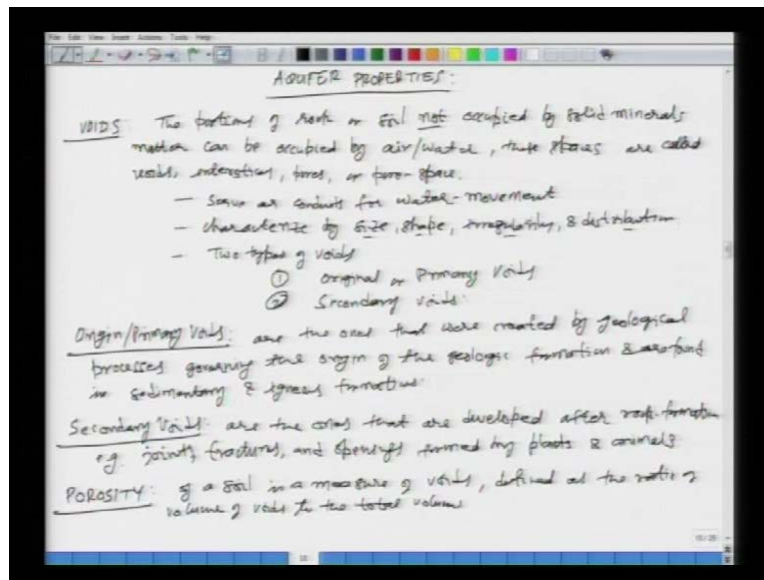 File Edit View Insert Actions Tools Help
AQUIFER PROPERTIES:
VOIDS The portions of rock or soil not occupied by solid minerals
matter can be occupied by air/water, these spaces are called
voids, interstices, pores, or pore-space.
— Serve as conduits for water-movement
— characterize by size, shape, irregularity, & distribution
— Two types of voids
① Original or Primary Voids
② Secondary Voids.
Origin/Primary Voids: are the ones that were created by geological
processes governing the origin of the geologic formation & are found
in sedimentary & igneous formations.
Secondary Voids: are the ones that are developed after rock-formation
e.g. joints, fractures, and openings formed by plants & animals
POROSITY: of a soil is a measure of voids, defined as the ratio of
volume of voids to the total volume